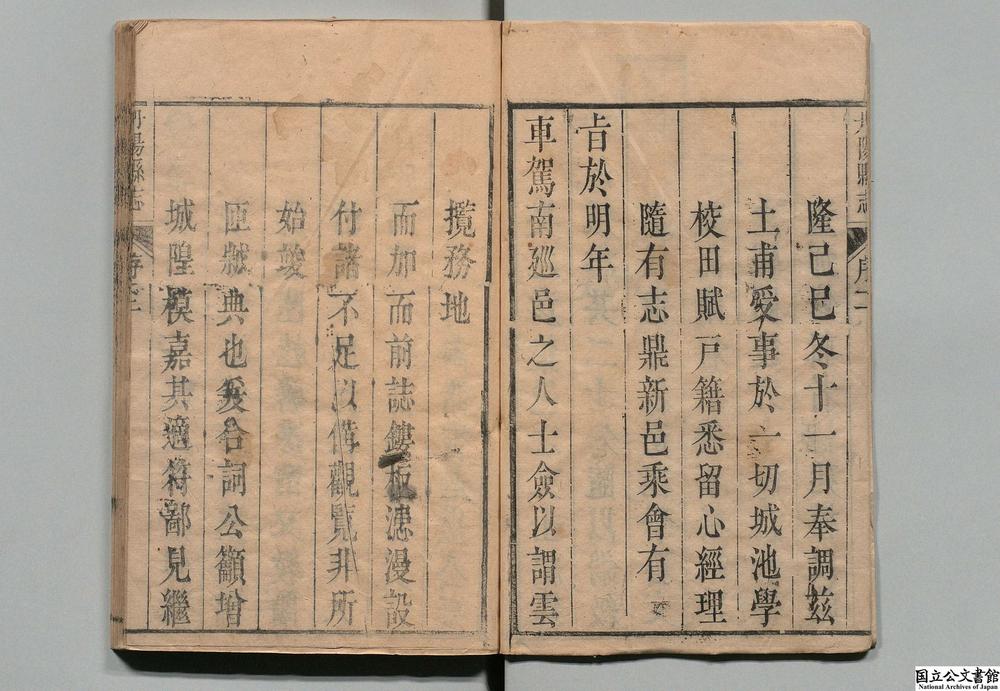 丹陽縣志 序二
隆己巳冬十一月奉調茲
土甫爰事於一切城池學
校田賦戸籍悉留心經理
隨有志鼎新邑乘會有
㫖於明年
車駕南廵邑之人士僉以謂雲
攬務地
而加而前誌鏤板漶漫設
付諸不足以備觀覧非所
始竣
匪
典也爰合詞公籲增
城隍模嘉其適符鄙見繼
丹陽縣志 序
国立公文書館
National Archives of Japan